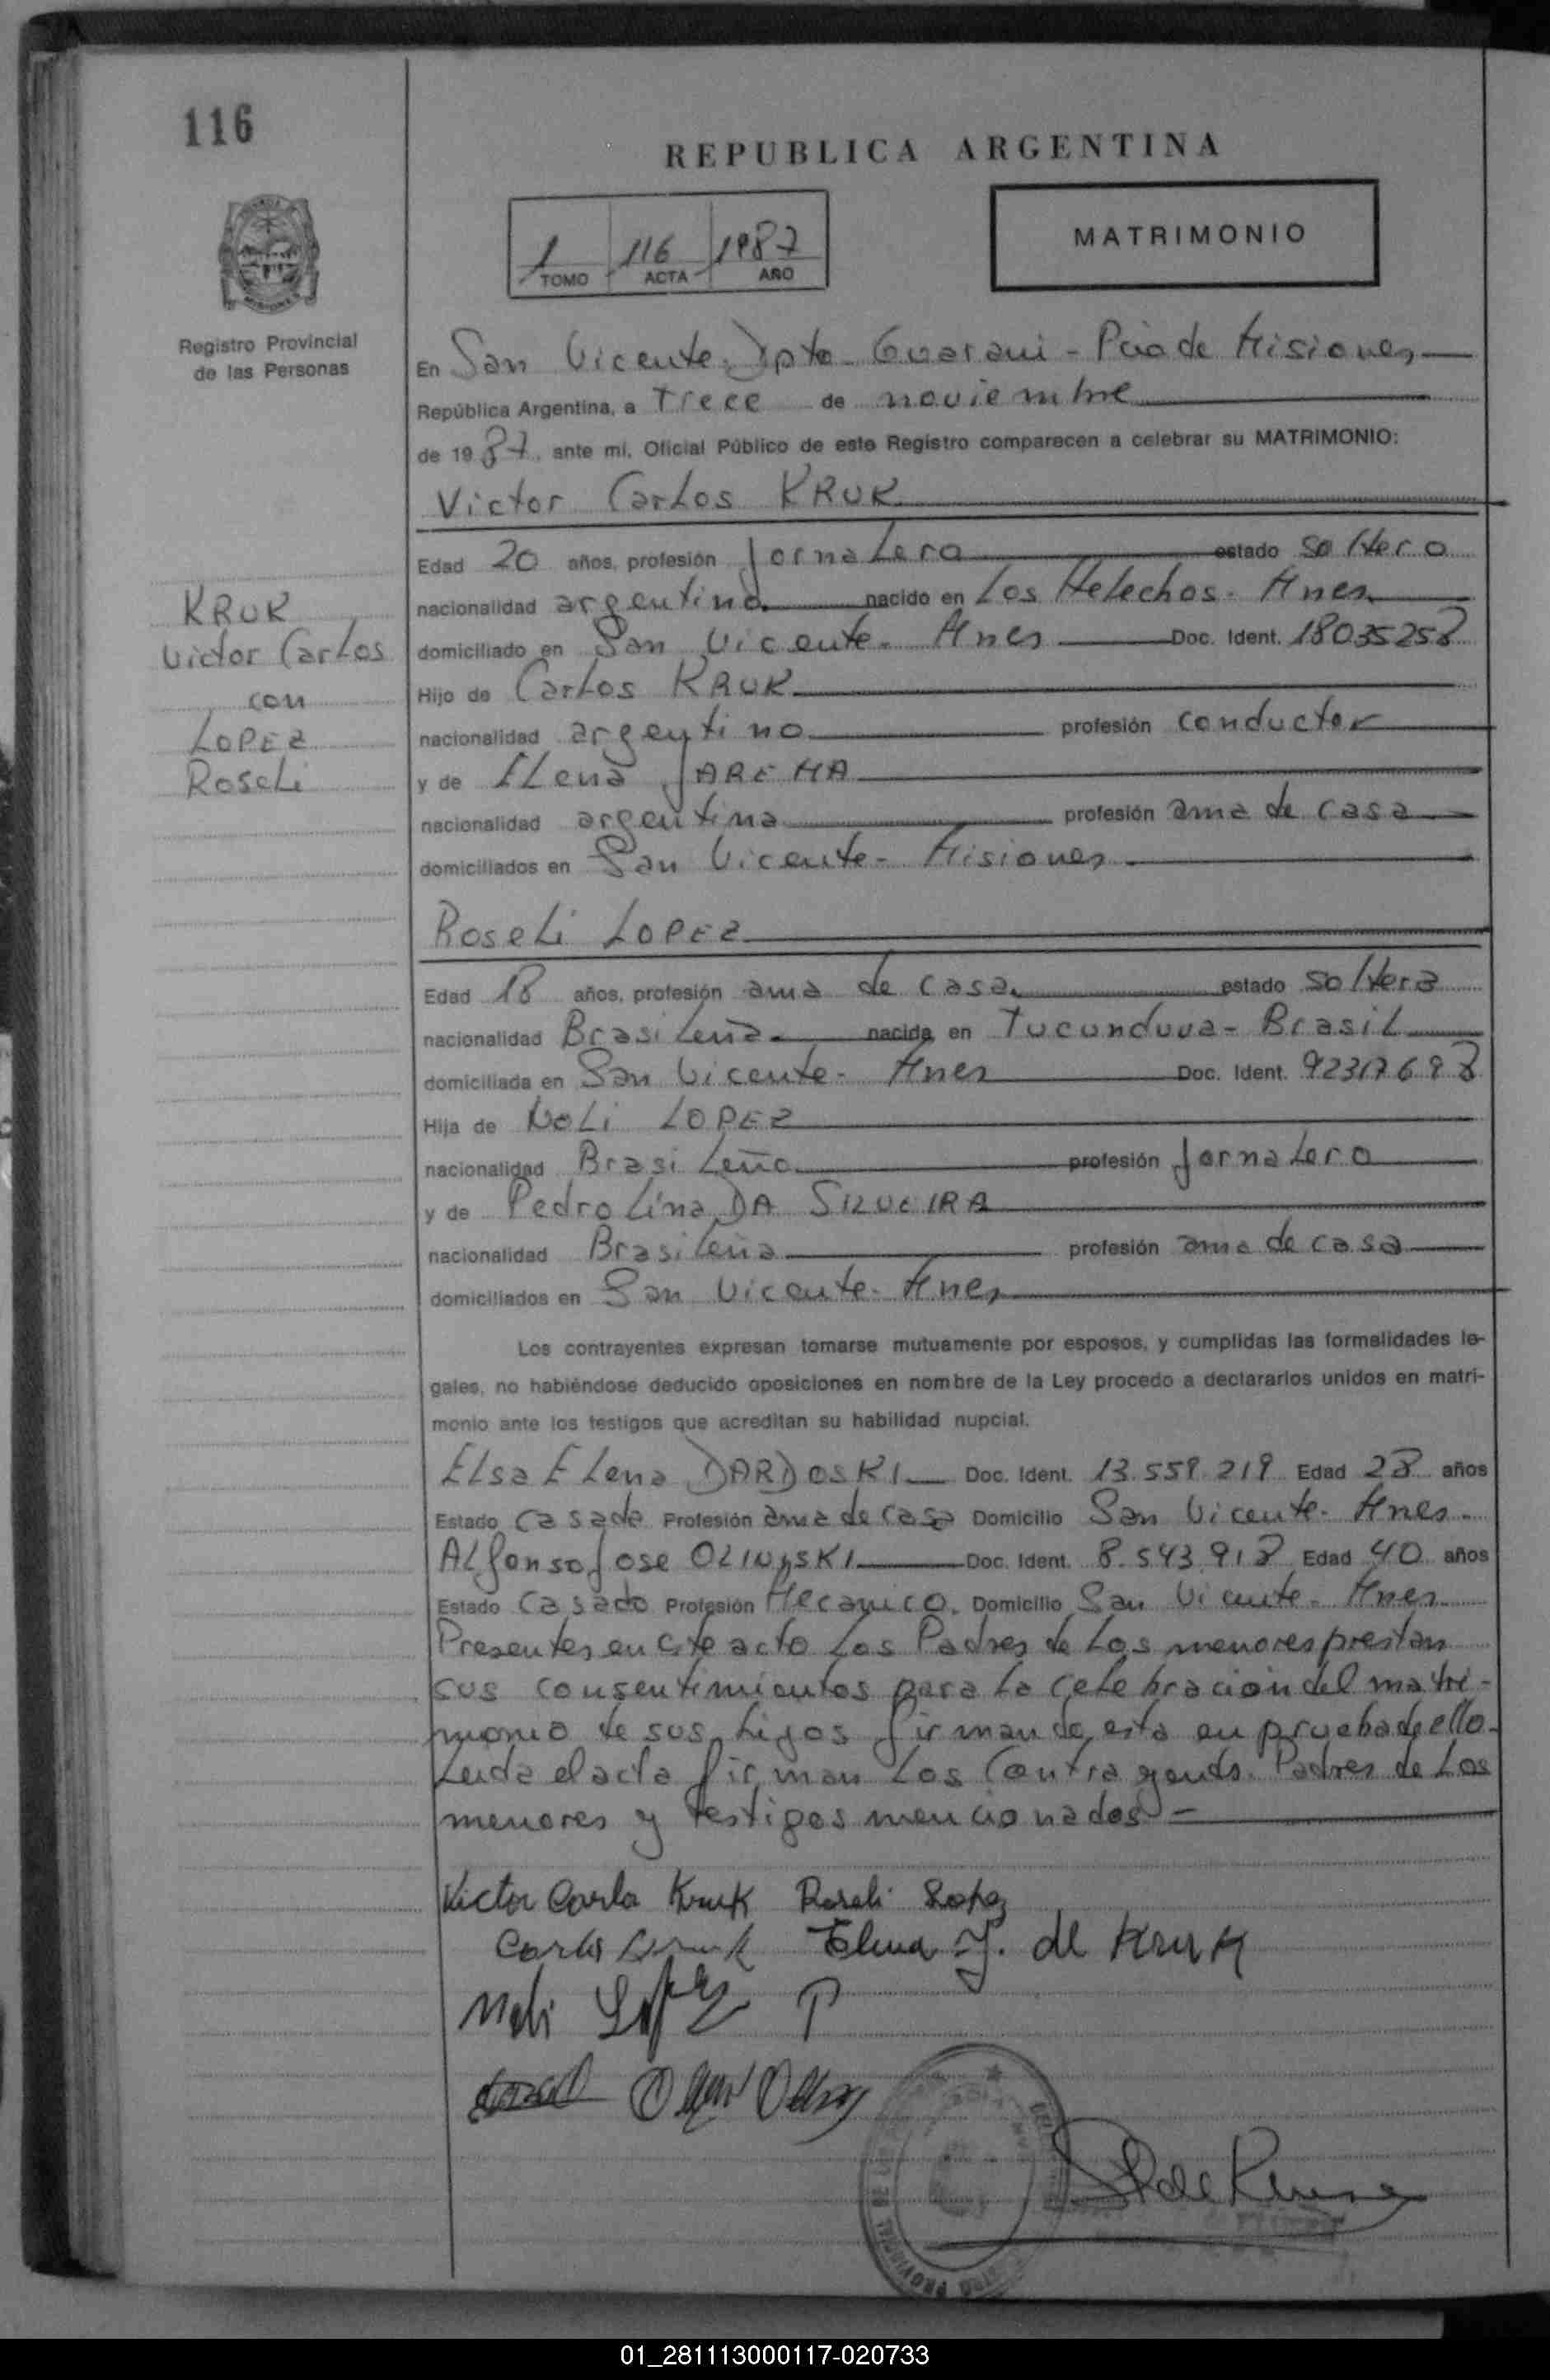 116
REPUBLICA ARGENTINA
1 116 1987
TOMO ACTA AÑO
MATRIMONIO
Registro Provincial
de las Personas
En San Vicente, Dpto. Guarani - Pcia de Misiones
República Argentina, a Trece de noviembre
de 1987, ante mi, Oficial Público de este Registro comparecen a celebrar su MATRIMONIO:
Victor Carlos KRUK
Edad 20 años, profesión Jornalero estado soltero
nacionalidad argentina nacido en Los Helechos - Mnes
domiciliado en San Vicente - Mnes Doc. Ident. 18035258
Hijo de Carlos KRUK
nacionalidad argentino profesión conductor
y de Elena JAREMA
nacionalidad argentina profesión ama de casa
domiciliados en San Vicente - Misiones
KRUK
Victor Carlos
con
LOPEZ
Roseli
Roseli LOPEZ
Edad 18 años, profesión ama de casa estado soltera
nacionalidad Brasileña nacida en Tucunduva - Brasil
domiciliada en San Vicente - Mnes Doc. Ident. 92317698
Hija de Noli LOPEZ
nacionalidad Brasileño profesión Jornalero
y de Pedrolina DA SILVEIRA
nacionalidad Brasileña profesión ama de casa
domiciliados en San Vicente - Mnes
Los contrayentes expresan tomarse mutuamente por esposos, y cumplidas las formalidades le-
gales, no habiéndose deducido oposiciones en nombre de la Ley procedo a declararlos unidos en matri-
monio ante los testigos que acreditan su habilidad nupcial.
Elsa Elena DARDOSKI Doc. Ident. 13.559.219 Edad 28 años
Estado Casada Profesión ama de casa Domicilio San Vicente - Mnes
Alfonso Jose Doc. Ident. 8.543.918 Edad 40 años
Estado Casado Profesión Mecanico. Domicilio San Vicente - Mnes
Presentes en este acto los Padres de los menores prestan
sus consentimientos para la celebracion del matri-
monio de sus hijos firmando esta en prueba de ello.
Leida el acta firman los Contrayents. Padres de los
menores y testigos mencionados -
Victor Carlo Kruk Roseli Lopez
Carlos Kruk Elena J. de Kruk
Noli Lopez P
01_281113000117-020733